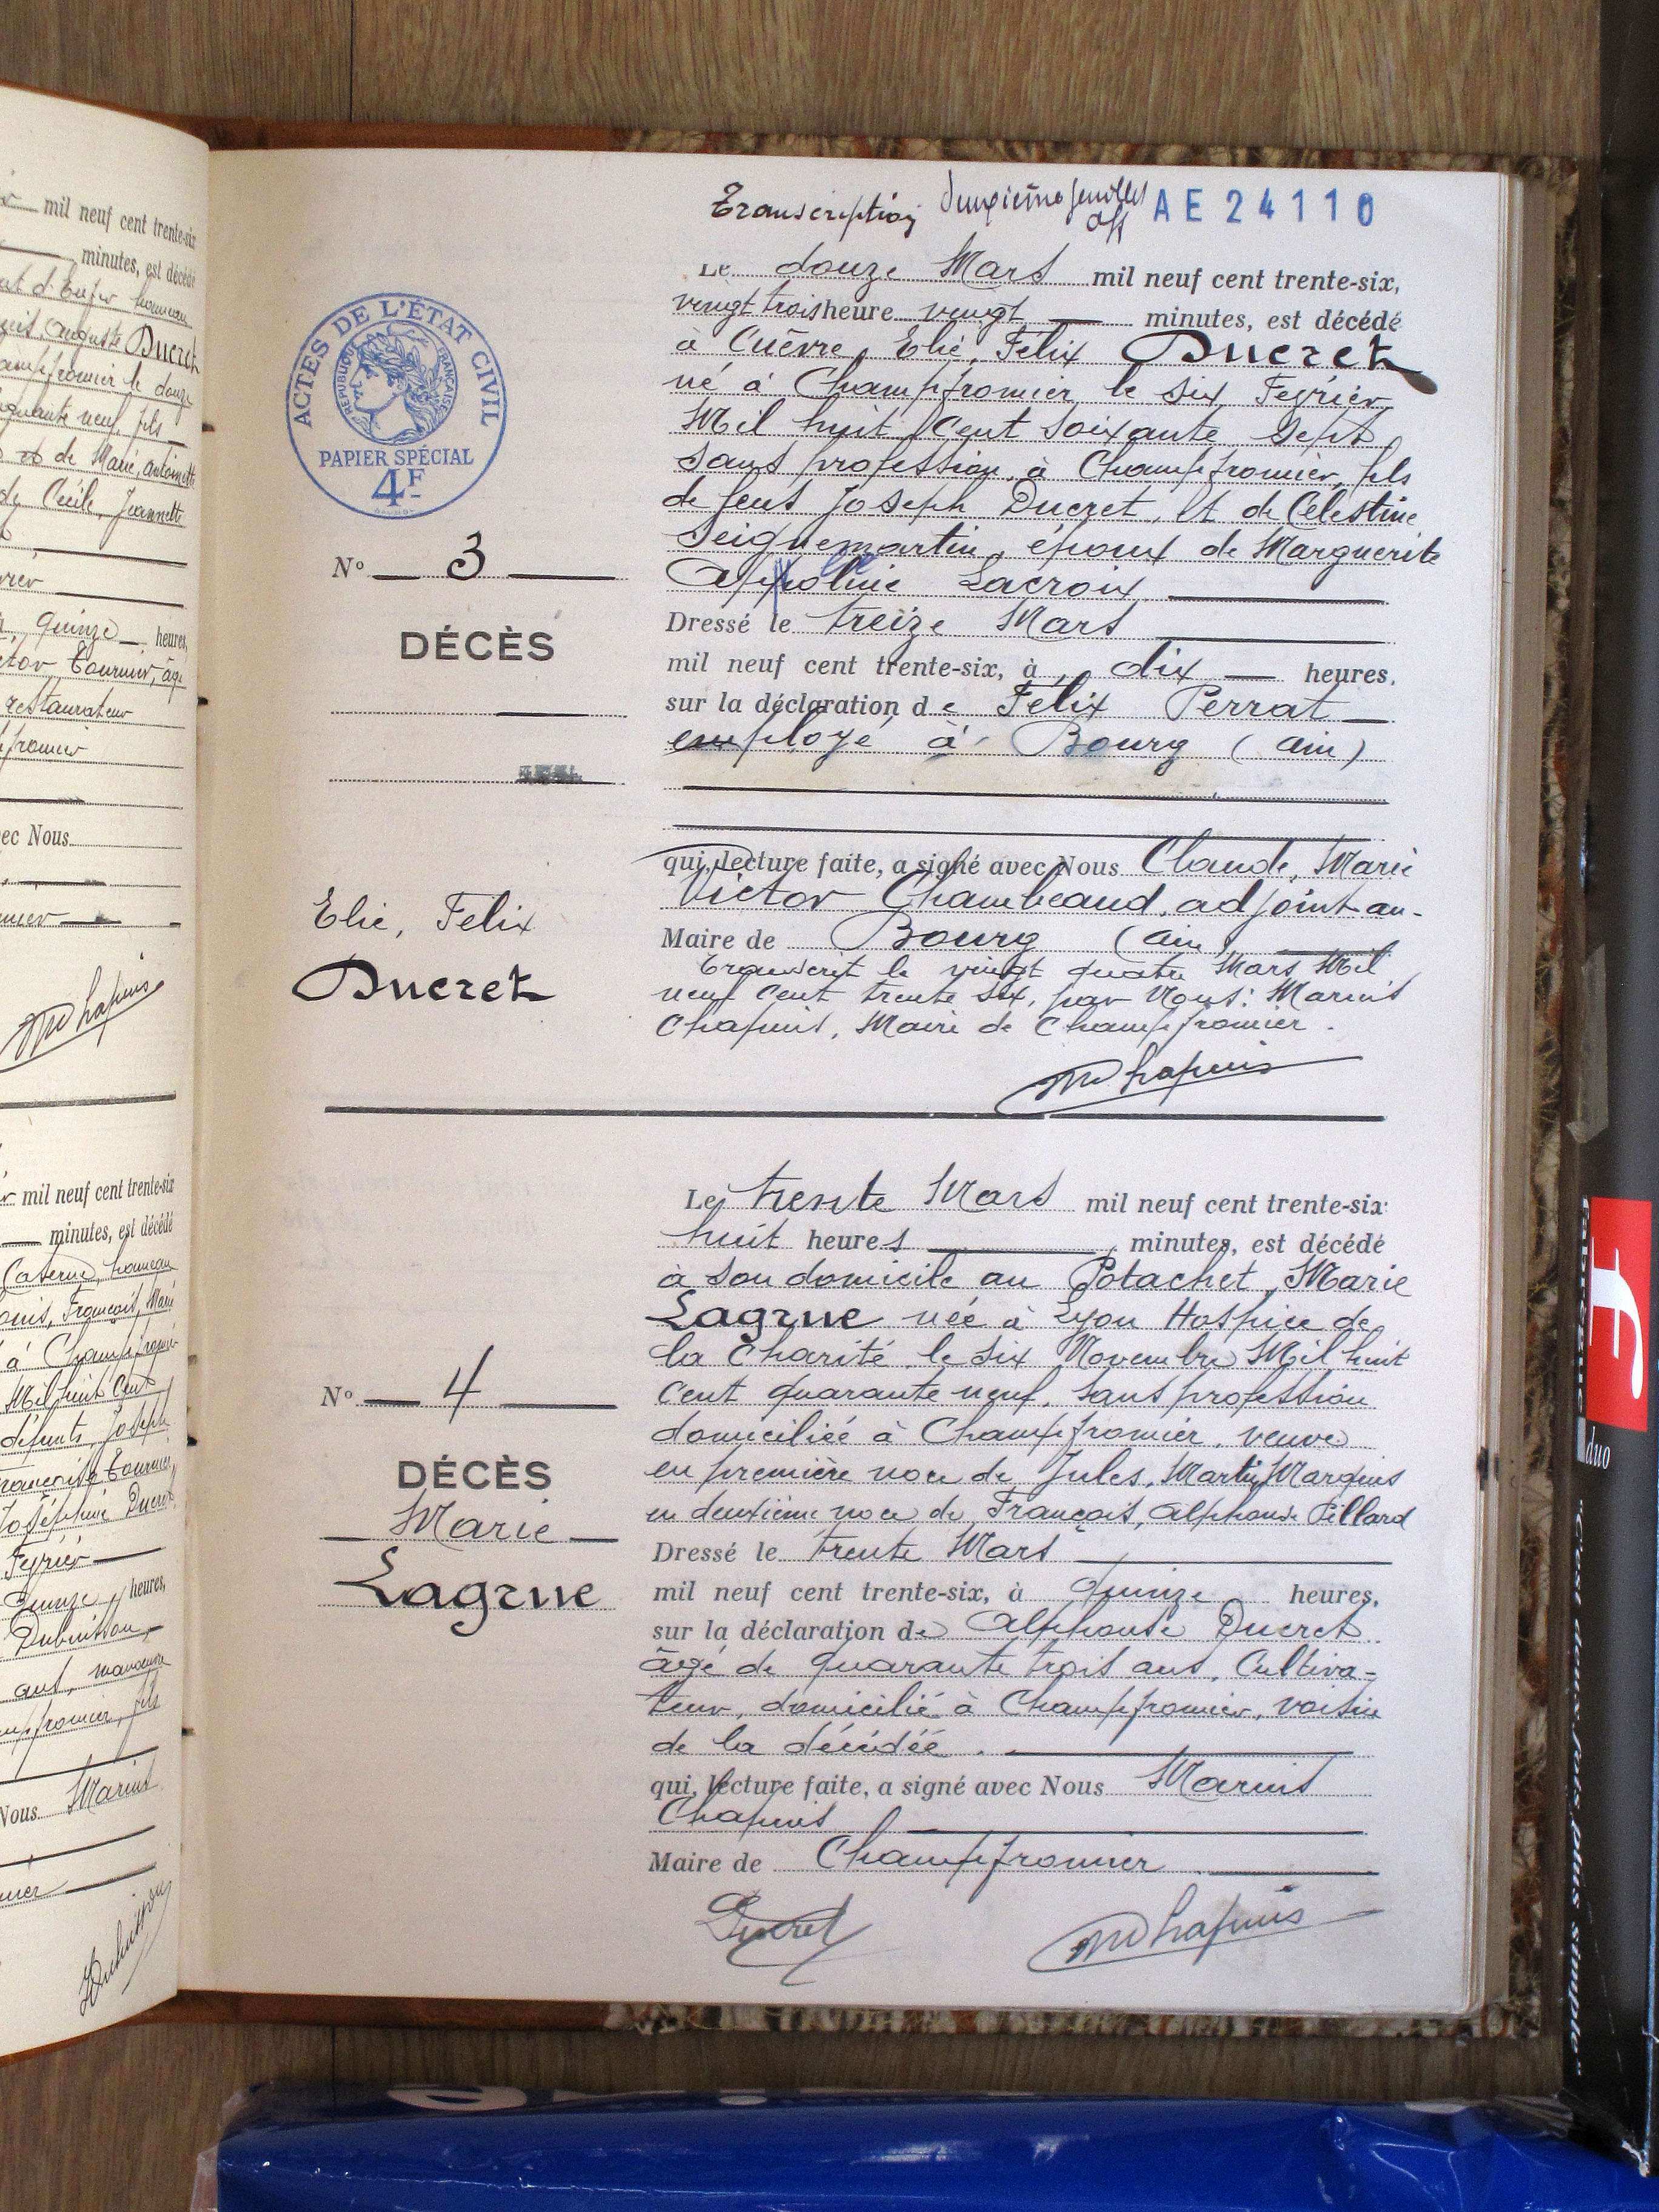 mil neuf cent trente-six
minutes, est décédé
Ducret
neuf, fils
et de Marie, Antoinette
de Cécile, Jeannette
quinze heures,
Tournier, âgé
restaurateur
Nous
MChapuis
mil neuf cent trente-six
minutes, est décédé
hameau
François, Marie
à
Mil huit Cent
défunts, Joseph
Joséphine Ducret
Février
quinze heures,
Dubuisson
ans,
fils
Nous Marius
Transcription deuxième feuillet AE 24110
Le douze Mars mil neuf cent trente-six,
vingt trois heure vingt minutes, est décédé
à Cuèvre, Elie, Félix Ducret
né à Champfromier le six Février
Mil huit Cent soixante sept
sans profession, à Champfromier, fils
de feus Joseph Ducret, et de Célestine
Seignemartin, époux de Marguerite
Lacroix
Dressé le treize Mars
mil neuf cent trente-six, à dix heures,
sur la déclaration de Félix Perrat
employé à Bourg (Ain)
qui, lecture faite, a signé avec Nous Claude, Marie
Victor Chambeaud, adjoint au
Maire de Bourg (Ain)
Transcrit le vingt quatre Mars Mil
neuf cent trente six, par Nous: Marius
Chapuis, Maire de Champfromier.
MChapuis
ACTES DE L'ÉTAT CIVIL
RÉPUBLIQUE FRANÇAISE
PAPIER SPÉCIAL
4F
No 3
DÉCÈS
Elie, Felix
Ducret
Le trente Mars mil neuf cent trente-six
huit heures minutes, est décédé
à son domicile au Potachet, Marie
Lagrue née à Lyon Hospice de
la Charité le six Novembre Mil huit
cent quarante neuf, sans profession
domiciliée à Champfromier, veuve
en première noce de Jules, Martin, Marquis
en deuxième noce de François, Alphonse Pillard
Dressé le trente Mars
mil neuf cent trente-six, à quinze heures,
sur la déclaration de Alphonse Ducret
âgé de quarante trois ans, Cultiva-
teur, domicilié à Champfromier, voisin
de la décédée.
qui, lecture faite, a signé avec Nous Marius
Chapuis
Maire de Champfromier
Ducret MChapuis
No 4
DÉCÈS
Marie
Lagrue
duo
"C'est deux fois plus simple"